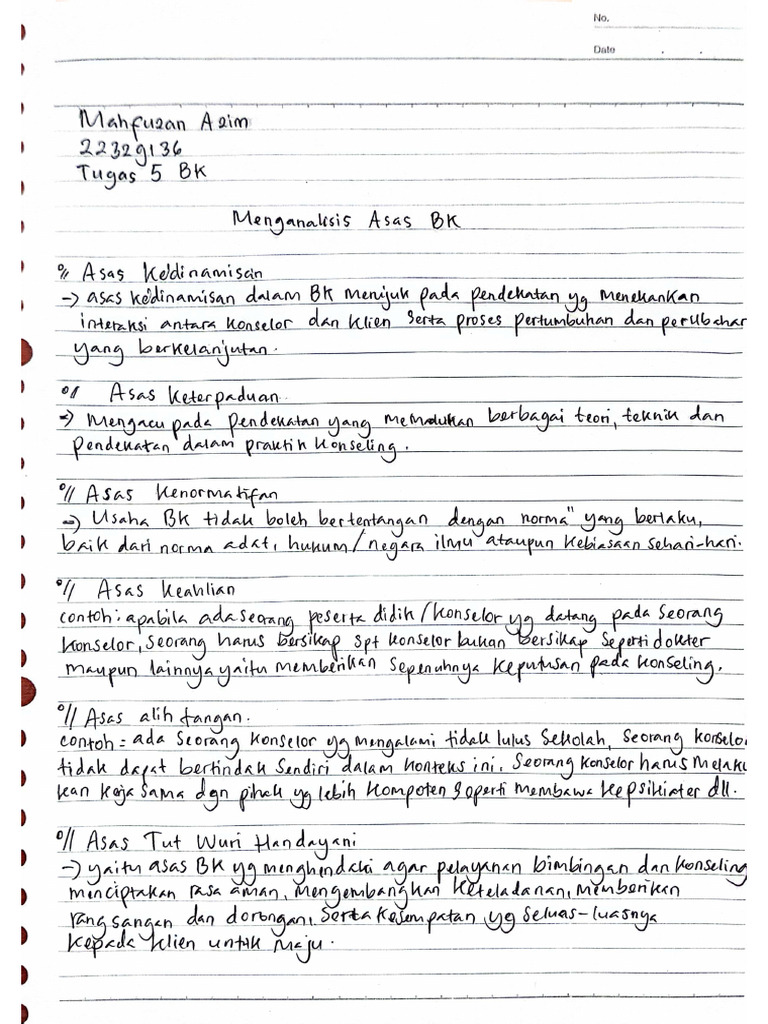 No.
Date
Mahfuzan Azim
22329136
Tugas 5 BK
Menganalisis Asas BK
% Asas Kedinamisan
→ asas kedinamisan dalam BK menijuk pada pendekatan yg menekankan
interaksi antara konselor dan klien serta proses pertumbuhan dan perubahan
yang berkelanjutan.
0// Asas Keterpaduan
→ Mengacu pada pendekatan yang memadukan berbagai teori, teknik dan
pendekatan dalam praktik konseling.
0// Asas Kenormatifan
→ Usaha BK tidak boleh bertentangan dengan norma" yang berlaku,
baik dari norma adat, hukum/negara ilmu ataupun kebiasaan sehari-hari.
0// Asas Keahlian
contoh : apabila ada seorang peserta didik/konselor yg datang pada seorang
konselor, seorang harus bersikap spt konselor bukan bersikap seperti dokter
maupun lainnya yaitu memberikan sepenuhnya keputusan pada konseling.
0// Asas alih tangan.
contoh = ada seorang konselor yg mengalami tidak lulus sekolah, seorang konselo
tidak dapat bertindak sendiri dalam konteks ini. Seorang konselor harus melaku
kan kerja sama dgn pihak yg lebih kompoten seperti membawa ke psikiater dll.
0// Asas Tut Wuri Handayani
→ yaitu asas BK yg menghendaki agar pelayanan bimbingan dan konseling
menciptakan rasa aman, mengembangkan keteladanan, memberikan
rangsangan dan dorongan, serta kesempatan yg seluas-luasnya
kepada klien untuk maju.